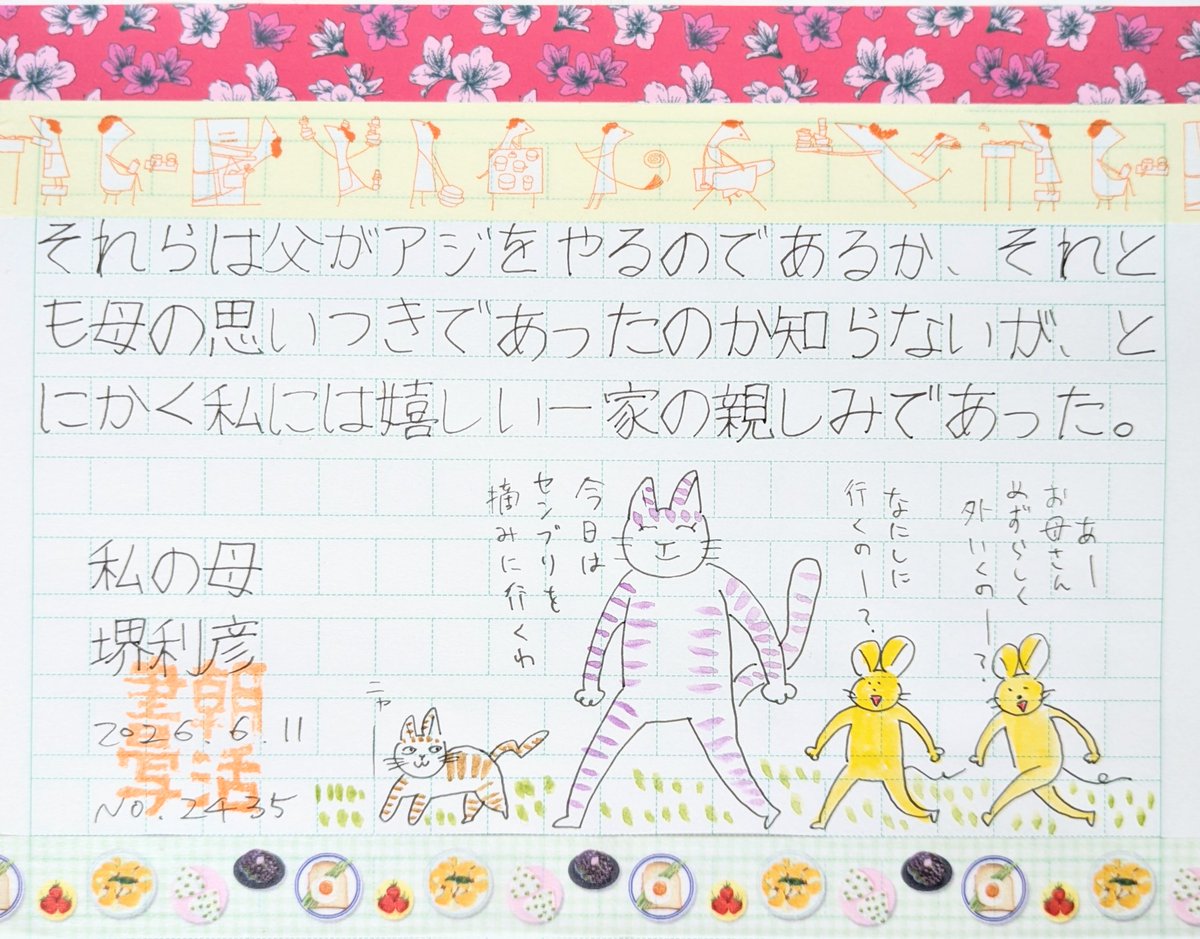 それらは父がアジをやるのであるか、それと
も母の思いつきであったのか知らないが、と
にかく私には嬉しい一家の親しみであった。
私の母
堺利彦
朝活
書写
2026.6.11
NO.2435
あー
お母さん
めずらしく
外いくのー?
なにしに
行くのー?
今日は
センブリを
摘みに行くわ
ニャ